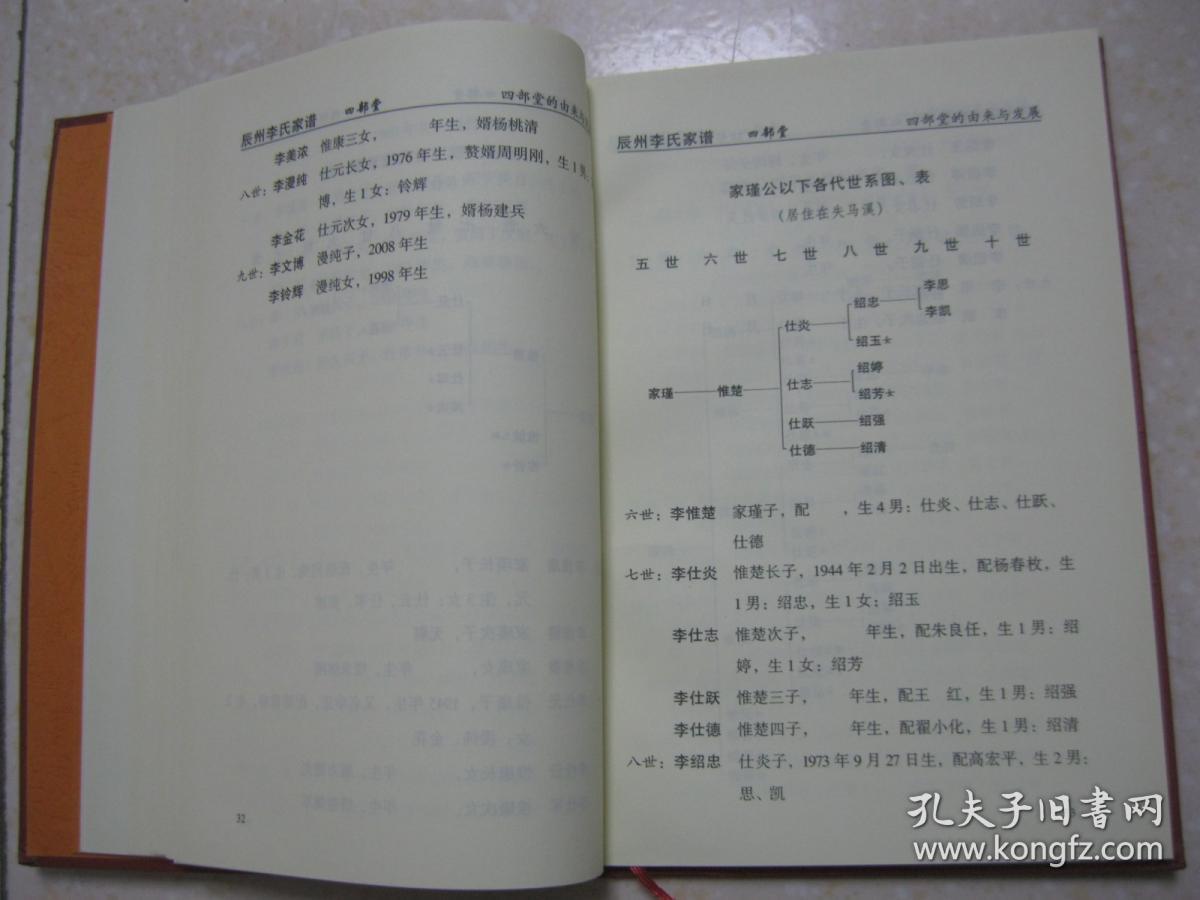 辰州李氏家谱 四部堂 四部堂的由来与
李美浓 惟康三女， 年生，婿杨桃清
八世：李漫纯 仕元长女，1976年生，赘婿周明刚，生1男：
博，生1女：铃辉
李金花 仕元次女，1979年生，婿杨建兵
九世：李文博 漫纯子，2008年生
李铃辉 漫纯女，1998年生
32
辰州李氏家谱 四部堂 四部堂的由来与发展
家瑾公以下各代世系图、表
（居住在失马溪）
五世 六世 七世 八世 九世 十世
李思
绍忠
李凯
仕炎
绍玉★
绍婷
仕志
家瑾 惟楚
绍芳★
仕跃 绍强
仕德 绍清
六世：李惟楚 家瑾子，配 ，生4男：仕炎、仕志、仕跃、
仕德
七世：李仕炎 惟楚长子，1944年2月2日出生，配杨春枚，生
1男：绍忠，生1女：绍玉
李仕志 惟楚次子， 年生，配朱良任，生1男：绍
婷，生1女：绍芳
李仕跃 惟楚三子， 年生，配王 红，生1男：绍强
李仕德 惟楚四子， 年生，配翟小化，生1男：绍清
八世：李绍忠 仕炎子，1973年9月27日生，配高宏平，生2男：
思、凯
孔夫子旧书网
www.kongfz.com